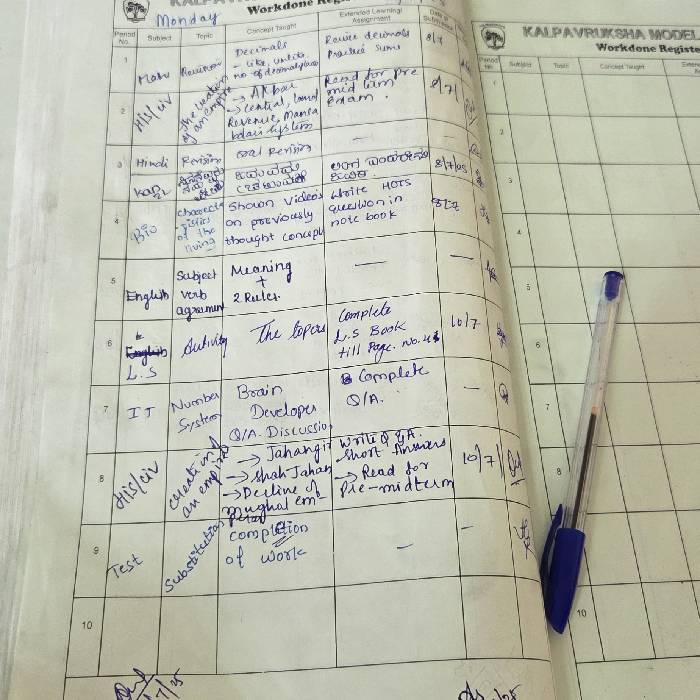 Monday
Workdone Regis
Period No. Subject Topic Concept Taught Extended Learning/ Assignment
1 Math Revision Decimals - like, unlike no. of decimal places Revise decimals Practice sums 8/7
2 His/civ The creation of an empire → Akbar → central, land Revenue, Mansabdari System Read for Pre mid term exam. 8/7
3 Hindi Revision oral Revision —
Kan 2L 8/7/25
4 Bio characteristics of the living Shown Videos on previously thought concept Write HOTS question in note book 8/7
5 English Subject verb agreement Meaning + 2 Rules. — —
6 L.S Activity The topers Complete L.S Book till Page. No. 10/7
7 IT Number System Brain Developer Q/A. Discussion Complete Q/A. —
8 His/civ Creation of an empire → Jahangir → Shah Jahan → Decline of mughal em- Write Q & A. Short Answers → Read for Pre-midterm 10/7
9 Test Substitution completion of work — —
10
KALPAVRUKSHA MODEL
Workdone Regis
Period No. Subject Topic Concept Taught
1
2
3
4
5
6
7
8
9
10